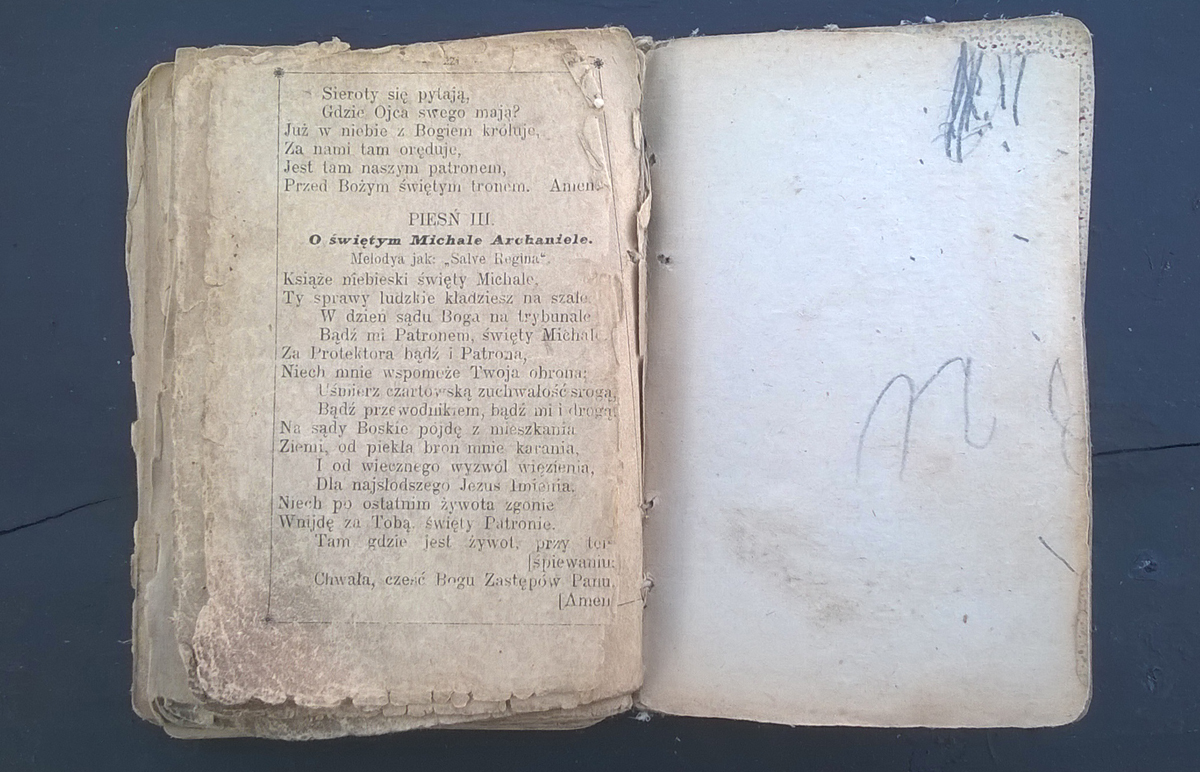 Sieroty się pytają,
Gdzie Ojca swego mają?
Już w niebie z Bogiem króluje,
Za nami tam oręduje,
Jest tam naszym patronem,
Przed Bożym świętym tronem. Amen.
PIESŃ III.
O świętym Michale Archaniele.
Melodya jak: „Salve Regina".
Książe niebieski święty Michale,
Ty sprawy ludzkie kładziesz na szale
W dzień sądu Boga na trybunale
Bądź mi Patronem, święty Michale
Za Protektora bądź i Patrona,
Niech mnie wspomoże Twoja obrona;
Uśmierz czartowską zuchwałość srogą,
Bądź przewodnikiem, bądź mi i drogą
Na sądy Boskie pójdę z mieszkania
Ziemi, od piekła broń mnie karania,
I od wiecznego wyzwól więzienia,
Dla najsłodszego Jezus Imienia.
Niech po ostatnim żywota zgonie
Wnijdę za Tobą, święty Patronie.
Tam gdzie jest żywot, przy tem
[śpiewaniu:
Chwała, cześć Bogu Zastępów Panu,
[Amen